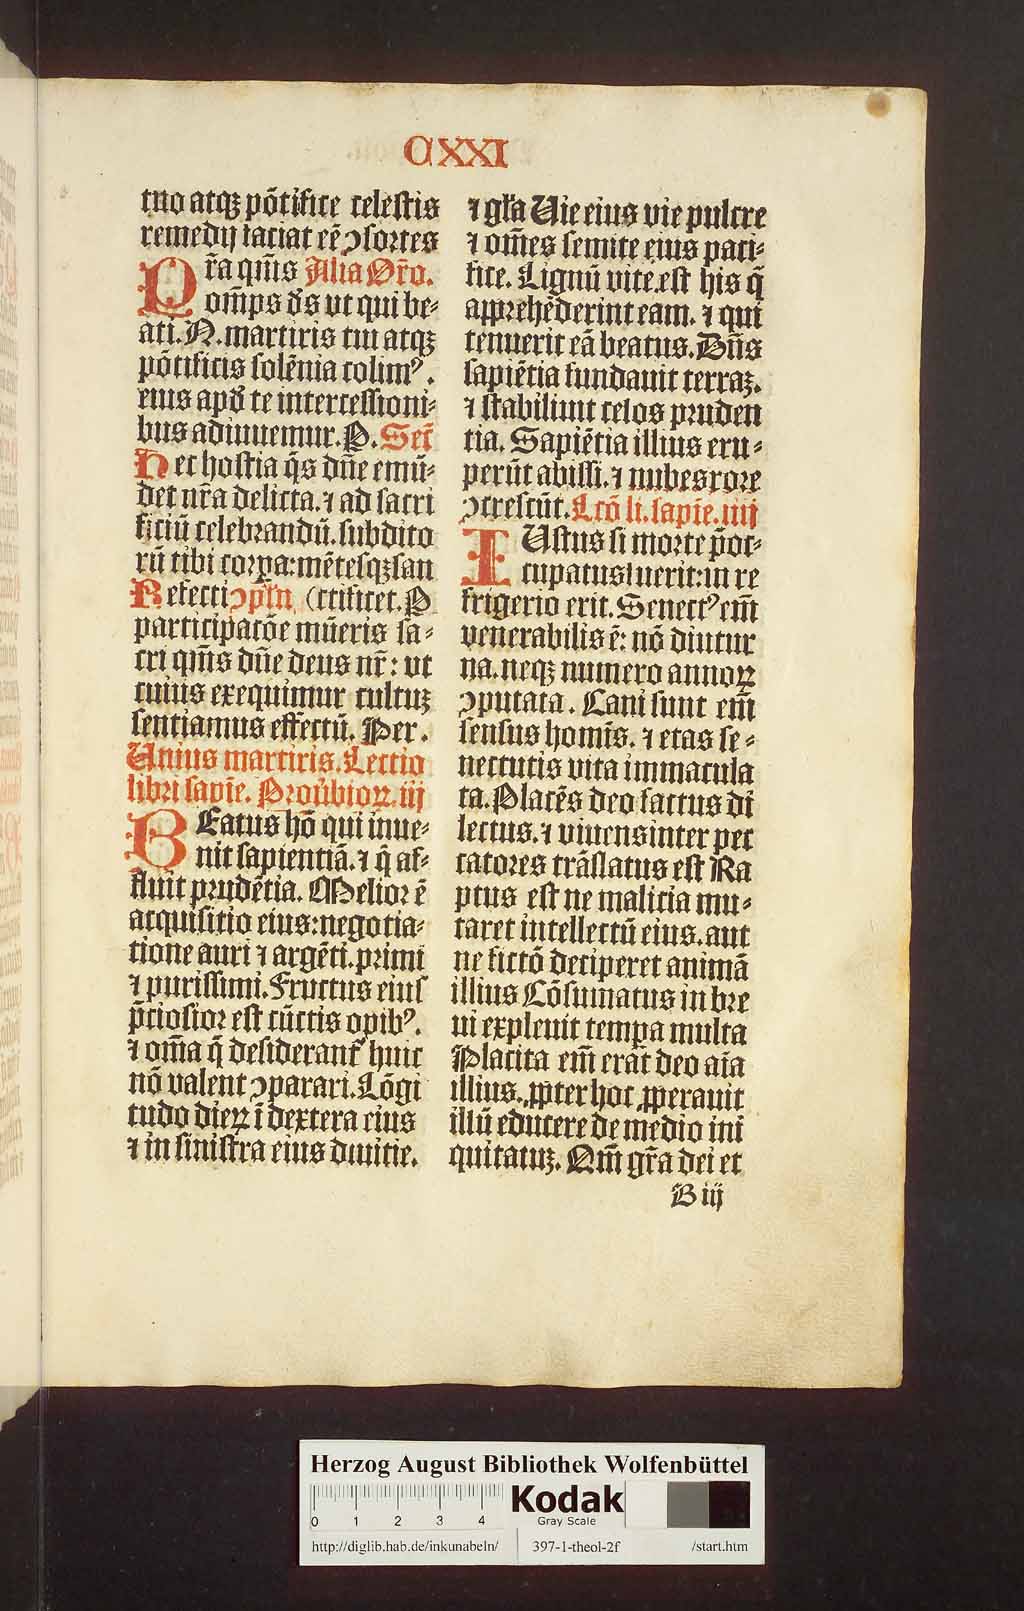 CXXI
tuo atqꝫ põtifice celestis
remedij faciat eẽ ꝯsortes
P r̃a qm̃s Alia Or̃o.
om̃ps ds̃ vt qui be⸗
ati. N. martiris tui atqꝫ
põtificis solẽnia colimꝰ.
eius apd̃ te intercessioni⸗
bus adiuuemur. P. Secr̃
Hec hostia q̃s dñe emũ⸗
det nr̃a delicta. ⁊ ad sacri
ficiũ celebrandũ. subdito
rũ tibi corꝑa: mẽtesqꝫ san
Refecti ꝯpłn (ctificet. P
participatõe mũeris sa⸗
cri qm̃s dñe deus nr̃: vt
cuius exequimur cultuꝫ
sentiamus effectũ. Per.
Unius martiris. Lectio
libri sapiẽ. Prou̾bioꝝ. iij
BEatus hõ qui inue⸗
nit sapientiã. ⁊ q̃ af⸗
fluit prudẽtia. Melior ẽ
acquisitio eius: negotia⸗
tione auri ⁊ argẽti. primi
⁊ purissimi. Fructus eius
p̃ciosior est cũctis opibꝰ.
⁊ om̃a q̃ desiderant̃ huic
nõ valent ꝯparari. Lõgi
tudo dieꝝ ĩ dextera eius
⁊ in sinistra eius diuitie.
⁊ gła Uie eius vie pulcre
⁊ om̃es semite eius paci⸗
fice. Lignũ vite est his q̃
apprehẽderint eam. ⁊ qui
tenuerit eã beatus. Dñs
sapiẽtia fundauit terraꝫ.
⁊ stabiliuit celos pruden
tia. Sapiẽtia illius eru⸗
perũt abissi. ⁊ nubes rore
ꝯcrescũt. Lcõ li. sapie. iiij
IUstus si morte p̃oc⸗
cupatus fuerit: in re
frigerio erit. Senectꝰ em̃
venerabilis ẽ: nõ diutur
na. neqꝫ numero annoꝝ
ꝯputata. Cani sunt em̃
sensus homĩs. ⁊ etas se⸗
nectutis vita immacula
ta. Placẽs deo factus di
lectus. ⁊ viuens inter pec
catores trãslatus est Ra
ptus est ne malicia mu⸗
taret intellectũ eius. aut
ne fictõ deciperet animã
illius Cõsumatus in bre
ui expleuit temꝑa multa
Placita em̃ erãt deo aĩa
illius. ꝓpter hoc ꝓperauit
illũ educere de medio ini
quitatuꝫ. Qm̃ gr̃a dei et
B iij
Herzog August Bibliothek Wolfenbüttel
0 1 2 3 4
Kodak
Gray Scale
http://diglib.hab.de/inkunabeln/ 397-1-theol-2f /start.htm